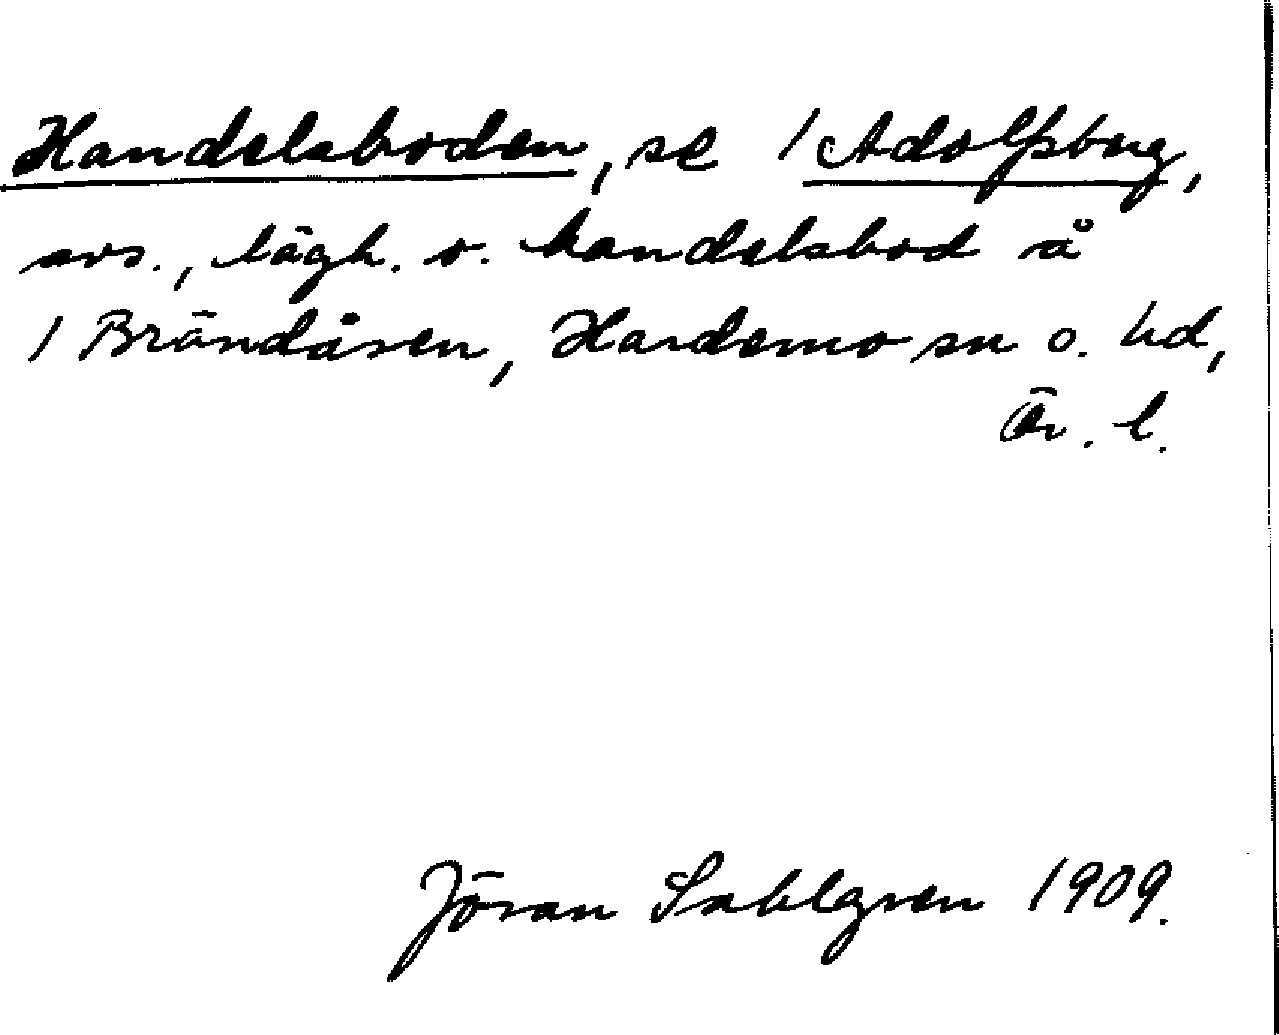 Handelsboden, se 1 Adolfsberg,
avs., lägh. o. handelsbod å
1 Brändåsen, Hardemo sn o. hd,
Ör. l.
Jöran Sahlgren 1909.